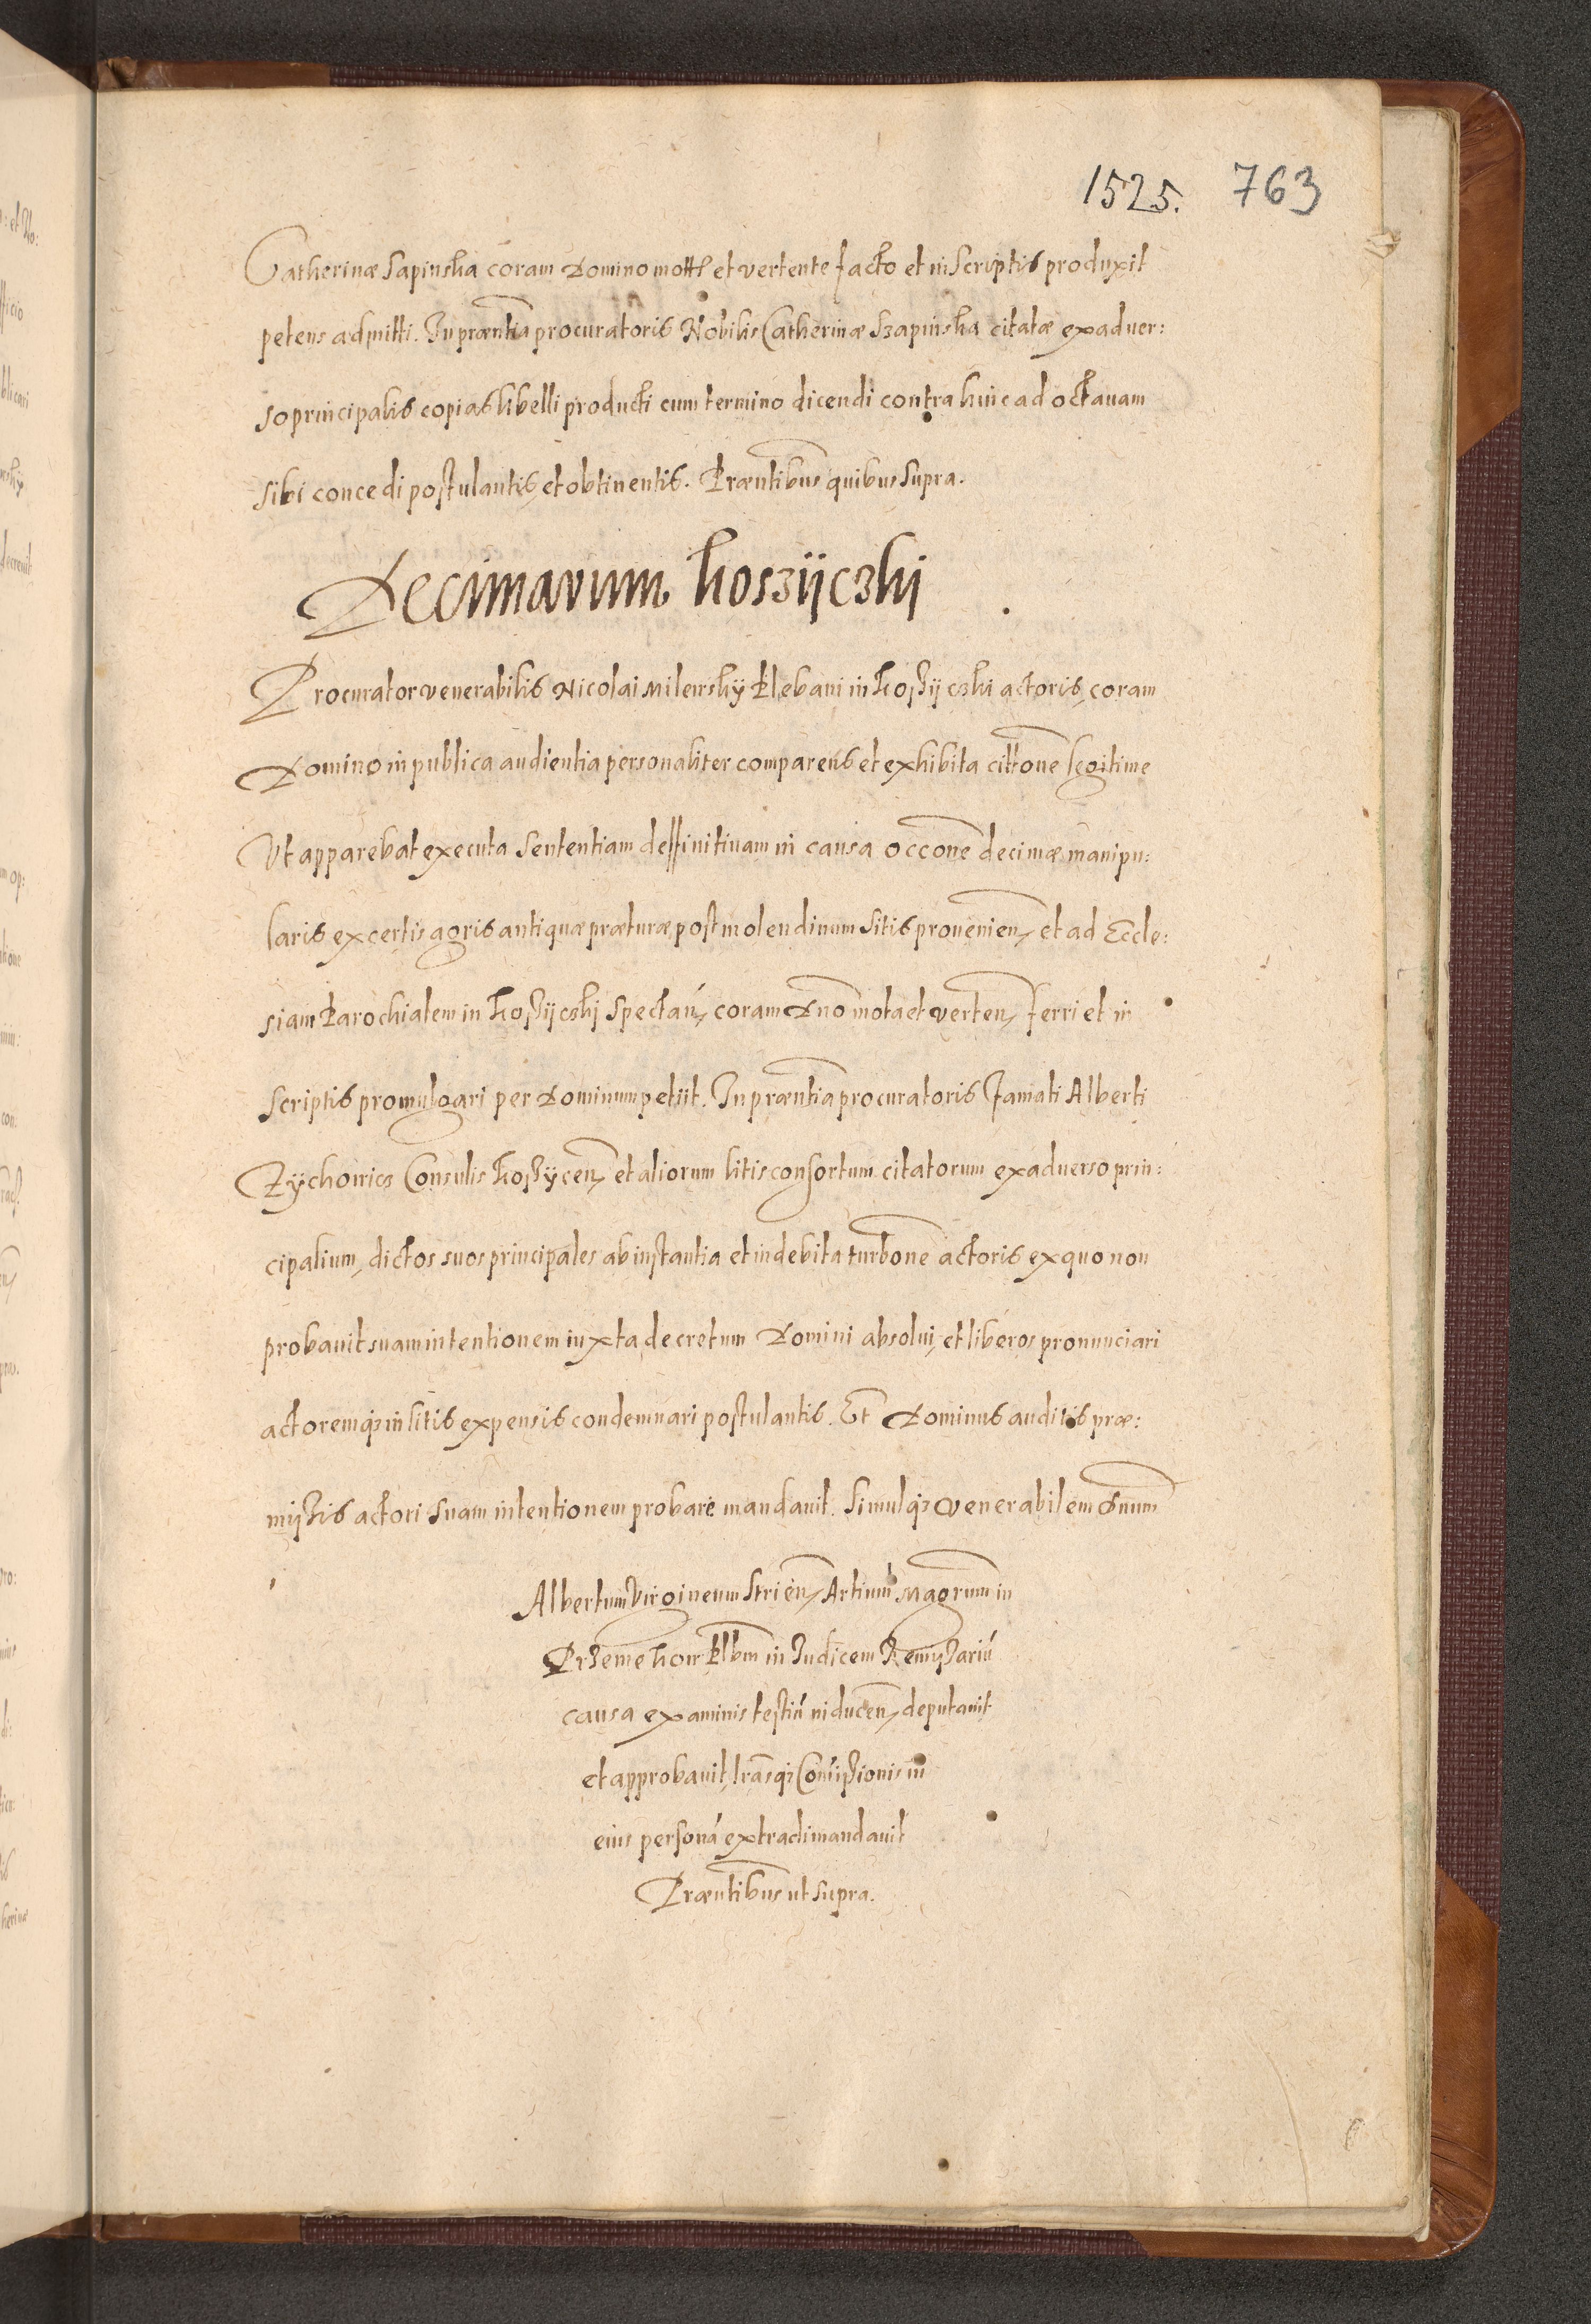 1525. 763
Catherinæ Sapinska coram Domino mottæ et vertente facto et in scriptis produxit
petens admitti. In præntia procuratoris Nobilis Catherinæ Szapinska citatæ ex aduer:
so principalis copias libelli producti cum termino dicendi contra hinc ad octauam
sibi concedi postulantis, et obtinentis. Præntibus quibus supra.
Decimarum koszijczki
Procurator venerabilis Nicolai Milewskÿ Plebani in Koßÿczki actoris, coram
Domino in publica audientia personaliter comparens et exhibita cittone legitime
Vt apparebat executa sententiam deffinitiuam in causa occone decimæ manipu:
laris ex certis agris antiquæ præturæ post molendinum sitis prouenien, et ad Eccle:
siam Parochialem in Koßijczkj spectan, coram Dno mota et verten, ferri et in
scriptis promulgari per Dominum petiit. In præntia procuratoris famati Alberti
Zÿchowicz Consulis Koßÿcen, et aliorum litis consortum citatorum ex aduerso prin:
cipalium, dictos suos principales ab instantia et indebita turbone actoris ex quo non
probauit suam intentionem iuxta decretum Domini absolui, et liberos pronunciari
actoremqз in litis expensis condemnari postulantis. Et Dominus auditis præ:
mißis actori suam intentionem probare mandauit. Simulqз venerabilem dnum
Albertum Virgineum Strien, Artium Magrum in
Przemehow Plbm in Iudicem Remißariu
causa examinis testiu inducen, deputauit
et approbauit, lrasqз Comißionis in
eius persona extradi mandauit
Præntibus ut supra.